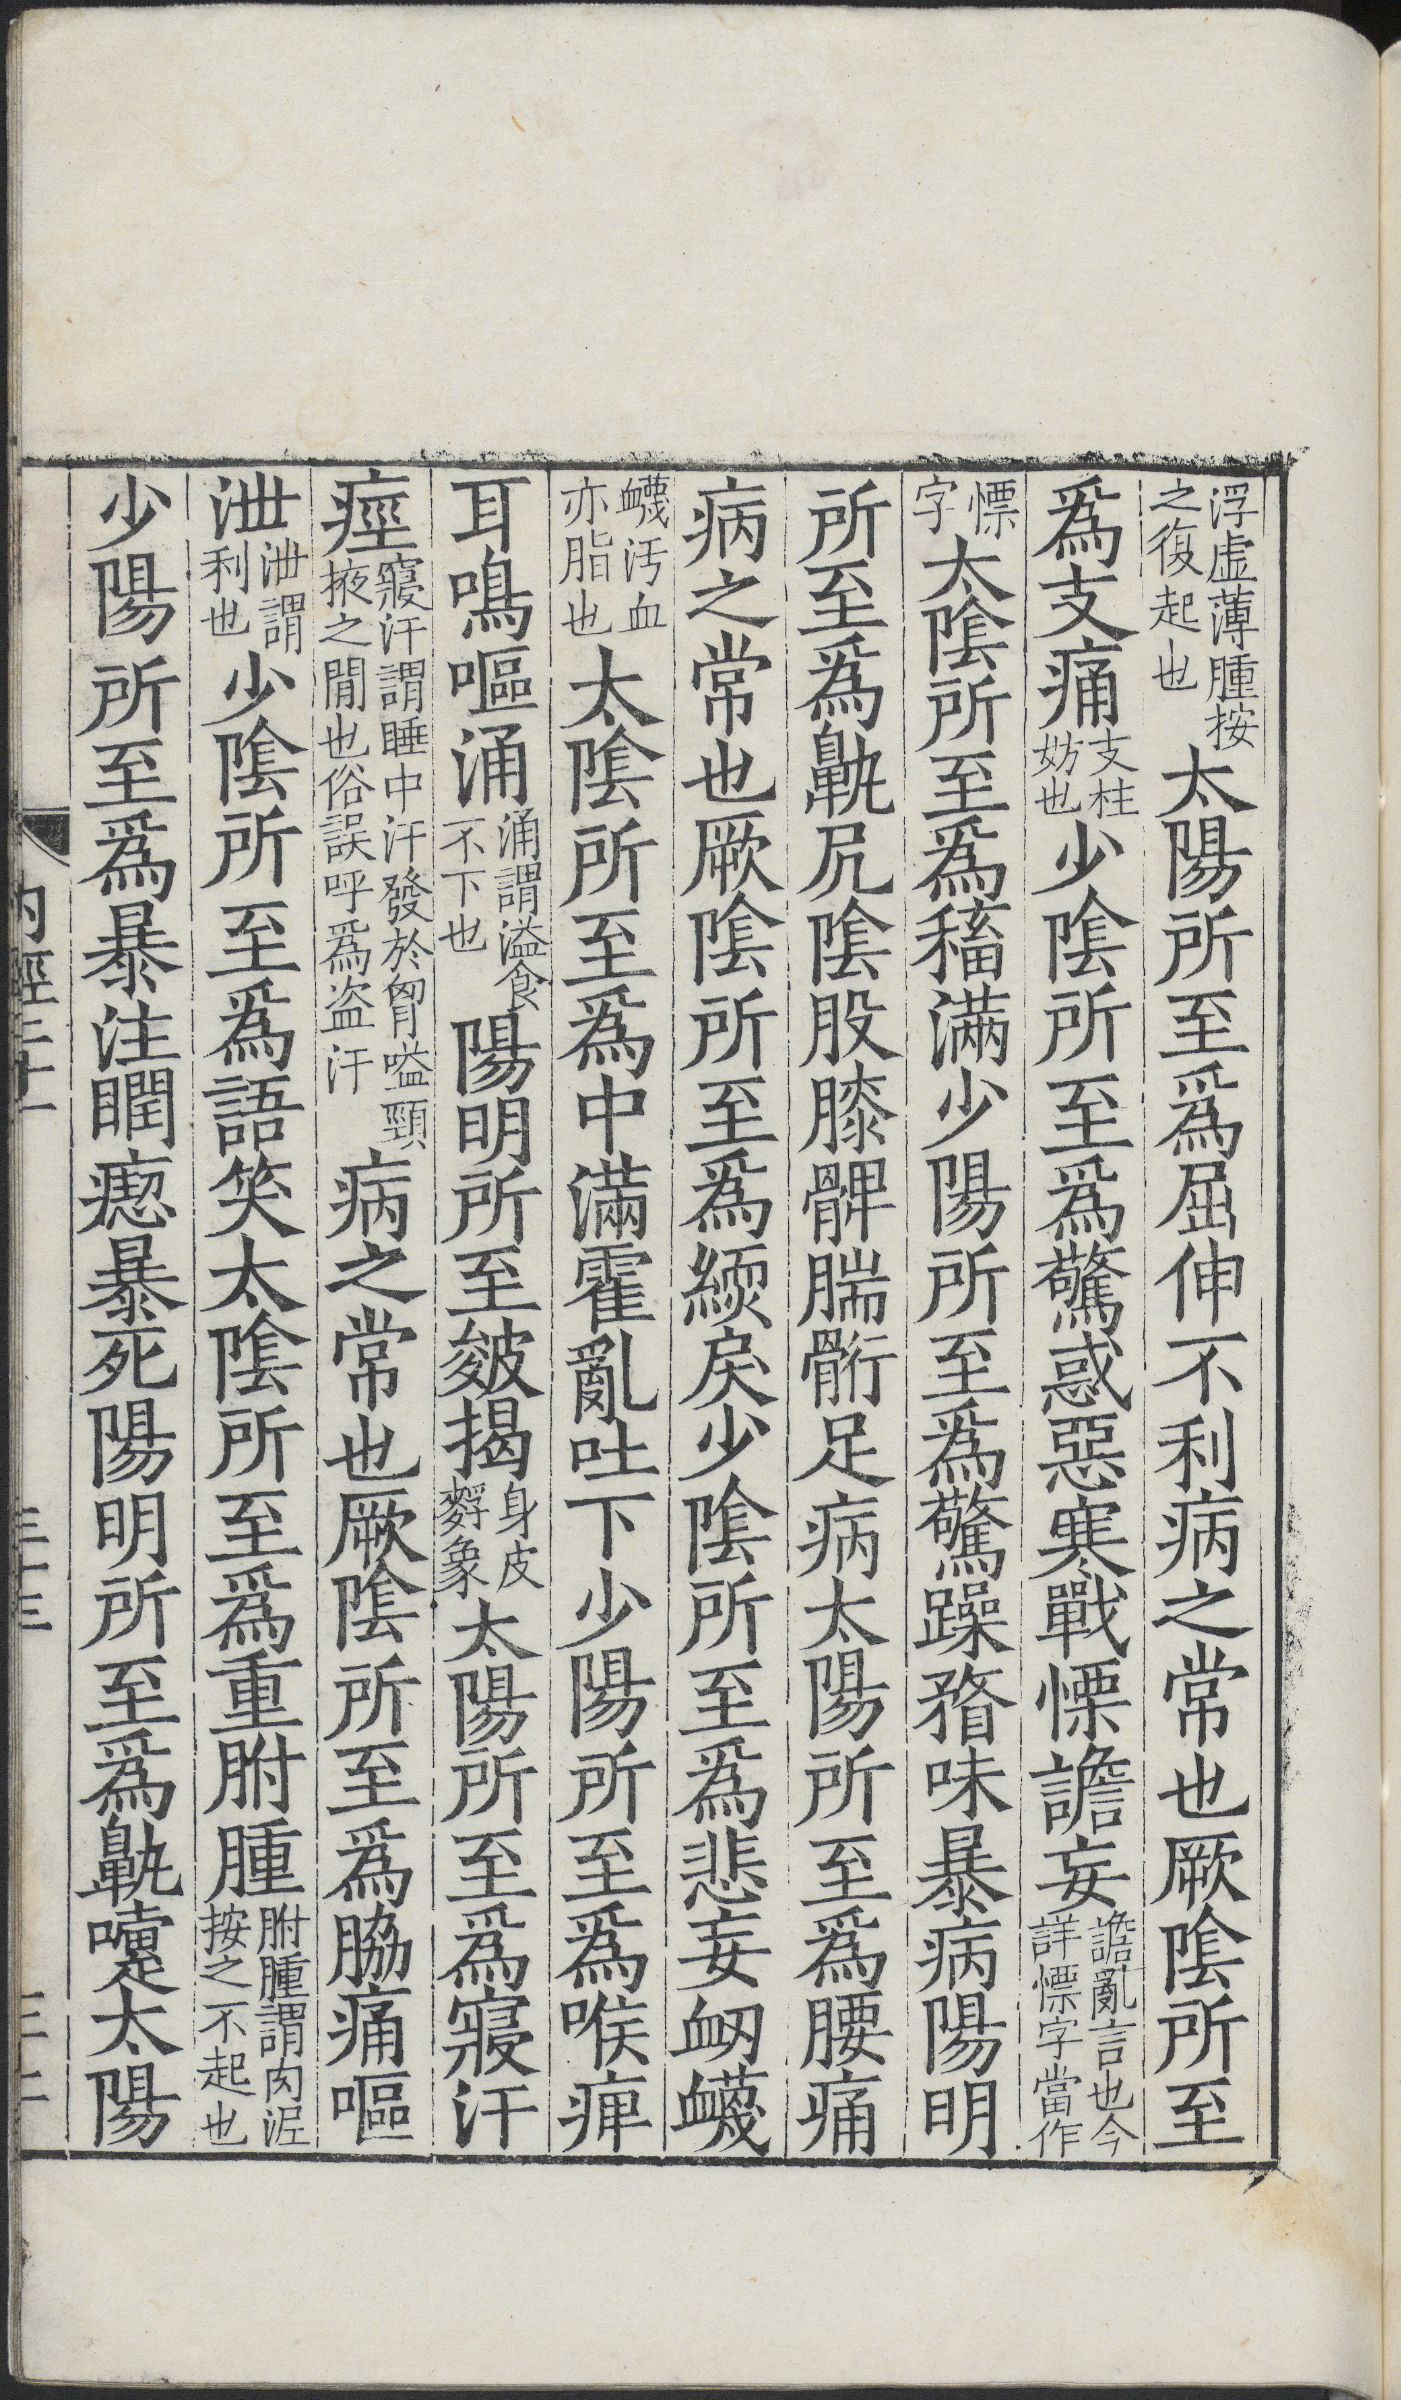 浮虚薄腫按之復起也太陽所至爲屈伸不利病之常也厥陰所至
爲支痛支柱妨也少陰所至爲驚惑惡寒戰慄譫妄譫亂言也今詳慄字當作
慓字太陰所至爲稸滿少陽所至爲驚躁瞀味暴病陽明
所至爲鼽尻陰股膝髀腨䯒足病太陽所至爲腰痛
病之常也厥陰所至爲緛戾少陰所至爲悲妄衂衊
衊汚血亦脂也太陰所至爲中滿霍亂吐下少陽所至爲喉痺
耳鳴嘔涌涌謂溢食不下也陽明所至皴揭身皮麨象太陽所至爲寢汗
痙寢汗謂睡中汗發於胷嗌頸掖之間也俗誤呼爲盗汗病之常也厥陰所至爲脇痛嘔
泄泄謂利也少陰所至爲語笑太陰所至爲重胕腫胕腫謂肉泥按之不起也
少陽所至爲暴注瞤瘛暴死陽明所至爲鼽嚏太陽
内經二十一